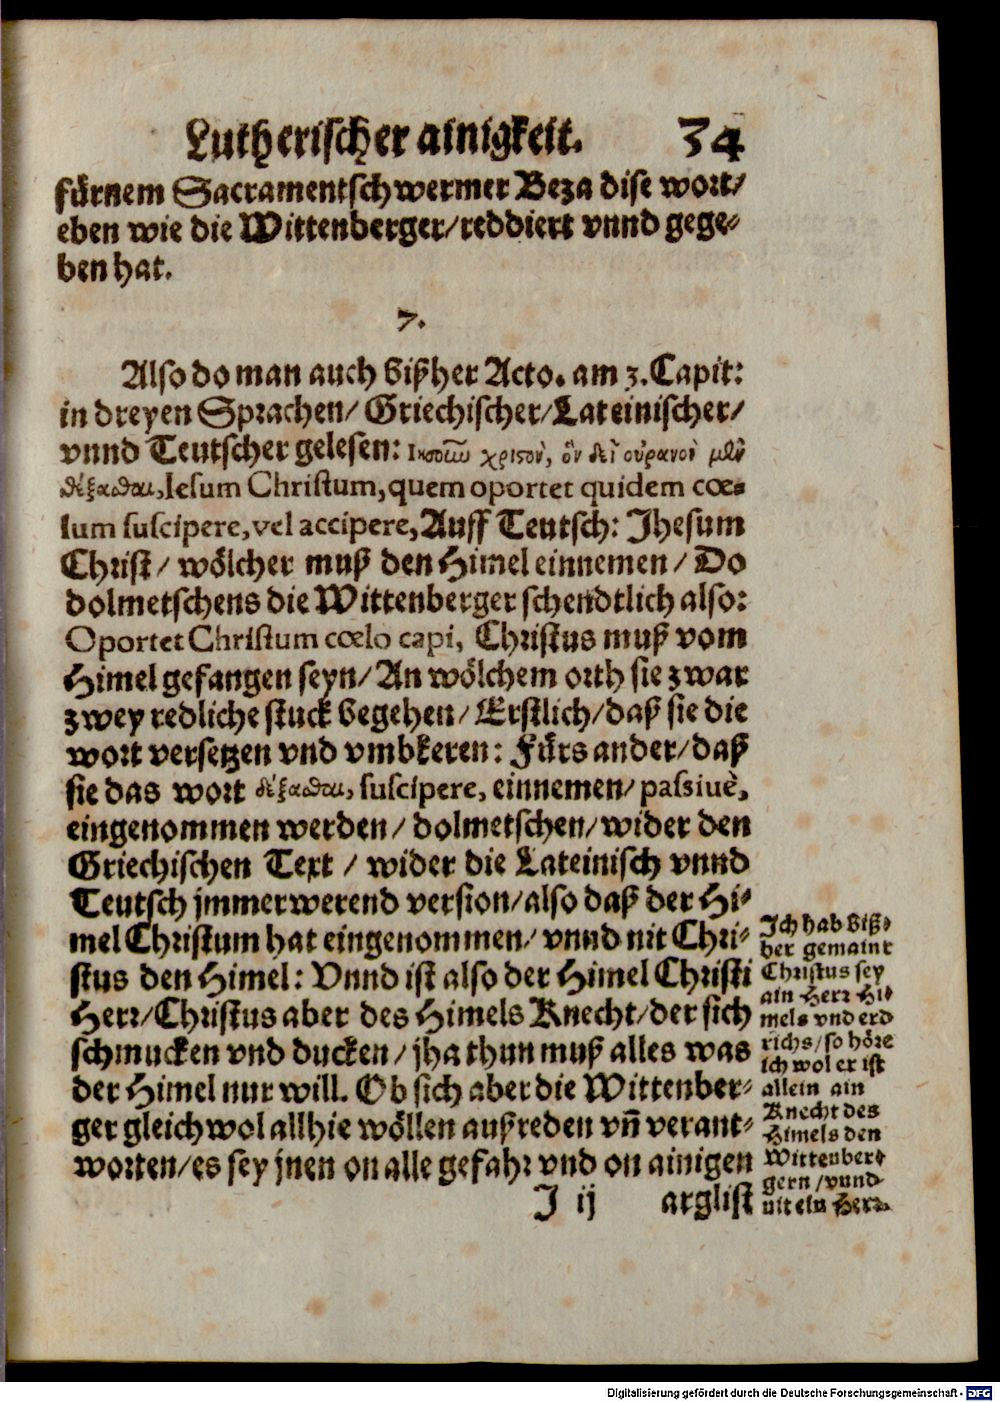 Lutherischer ainigkeit. 34
fürnem Sacramentschwermer Beza dise wort/
eben wie die Wittenberger/reddiert vnnd gege-
ben hat.
7.
Also do man auch bißher Acto. am 3. Capit:
in dreyen Sprachen/ Griechischer/Lateinischer/
vnnd Teutscher gelesen: Ιησοῦν χριστὸν, ὃν δεῖ οὐρανὸν μὲν
δέξασθαι, Iesum Christum, quem oportet quidem cœ-
lum suscipere, vel accipere, Auff Teutsch: Jhesum
Christ/ wölcher muß den Himel einnemen/ Do
dolmetschens die Wittenberger schendtlich also:
Oportet Christum cœlo capi, Christus muß vom
Himel gefangen seyn/ An wölchem orth sie zwar
zwey redliche stuck begehen/ Erstlich/daß sie die
wort versetzen vnd vmbkeren: Fürs ander/ daß
sie das wort δέξασθαι, suscipere, einnemen/ passiuè,
eingenommen werden/ dolmetschen/ wider den
Griechischen Text/ wider die Lateinisch vnnd
Teutsch jmmerwerend version/also daß der Hi-
mel Christum hat eingenommen/ vnnd nit Chri-
stus den Himel: Vnnd ist also der Himel Christi
Herr/Christus aber des Himels Knecht/der sich
schmucken vnd ducken/ jha thun muß alles was
der Himel nur will. Ob sich aber die Wittenber-
ger gleichwol allhie wöllen außreden vñ verant-
worten/es sey jnen on alle gefahr vnd on ainigen
J ij arglist
Ich hab biß-
her gemaint
Christus sey
ain Herr Hi-
mels vnd erd
richs/so höre
ich wol er ist
allein ain
Knecht des
Himels den
Wittenber-
gern/vnnd
nit ein Herr.
Digitalisierung gefördert durch die Deutsche Forschungsgemeinschaft - DFG